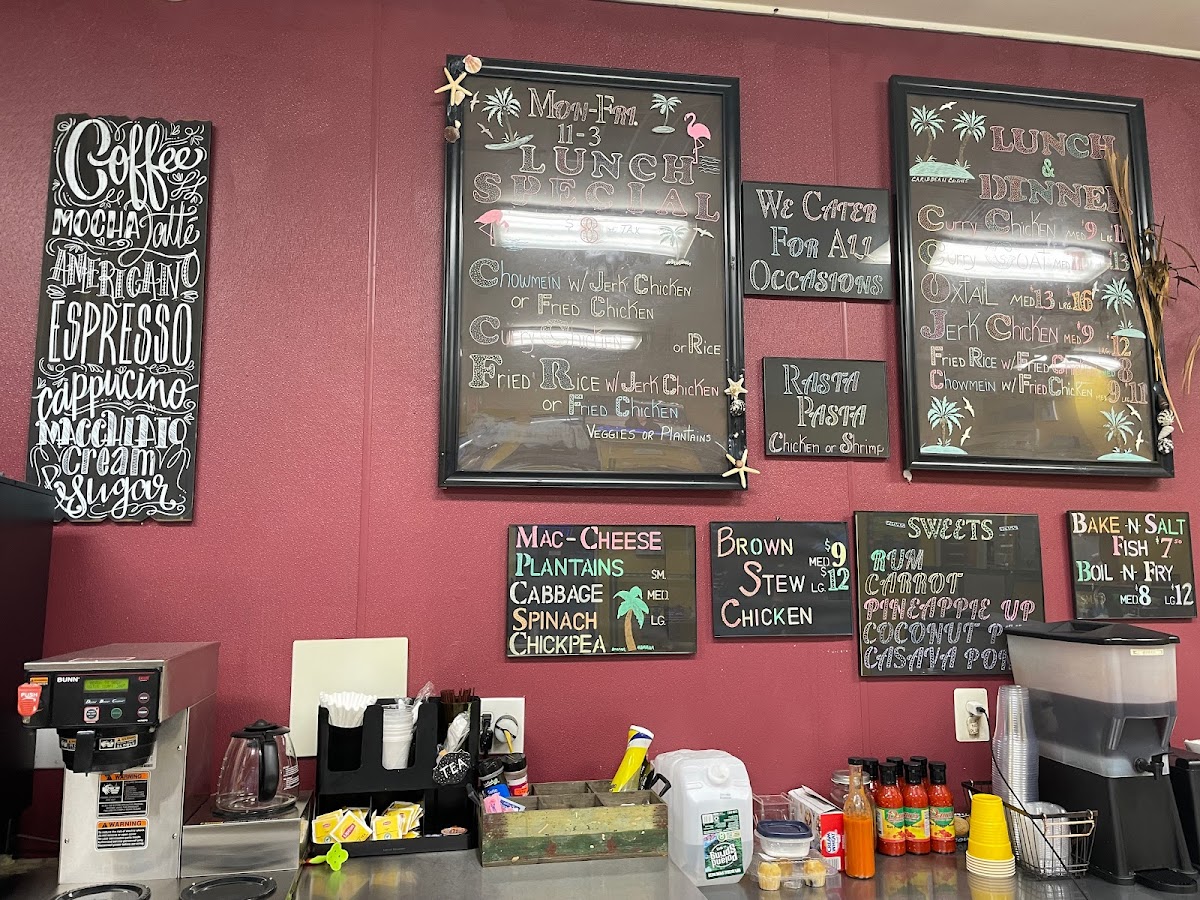 Coffee
MOCHA Latté
AMERICANO
ESPRESSO
cappucino
MACCHIATO
cream
& sugar
MON-FRI.
11-3
LUNCH
SPECIAL
$8
CHOWMEIN W/ JERK CHICKEN
OR FRIED CHICKEN
CURRY CHICKEN OR RICE
FRIED RICE W/ JERK CHICKEN
OR FRIED CHICKEN
VEGGIES OR PLANTAINS
WE CATER
FOR ALL
OCCASIONS
RASTA
PASTA
CHICKEN OR SHRIMP
LUNCH
&
DINNE
CURRY CHICKEN MED $9 LG 11
CURRY GOAT 13
OXTAIL MED $13 LRG $16
JERK CHICKEN MED $9
LRG 12
FRIED RICE W/ FRIED
CHOWMEIN W/ FRIED CHICKEN 9 11
MAC-CHEESE
PLANTAINS SM.
CABBAGE MED.
SPINACH LG.
CHICKPEA
BROWN MED $9
STEW LG. $12
CHICKEN
SWEETS
RUM
CARROT
PINEAPPLE UP
COCONUT P
CASAVA PO
BAKE N SALT
FISH $7.50
BOIL-N-FRY
MED $8 LG $12
BUNN
PUSH
WARNING
WARNING
TEA
Lipton
Poland
Spring